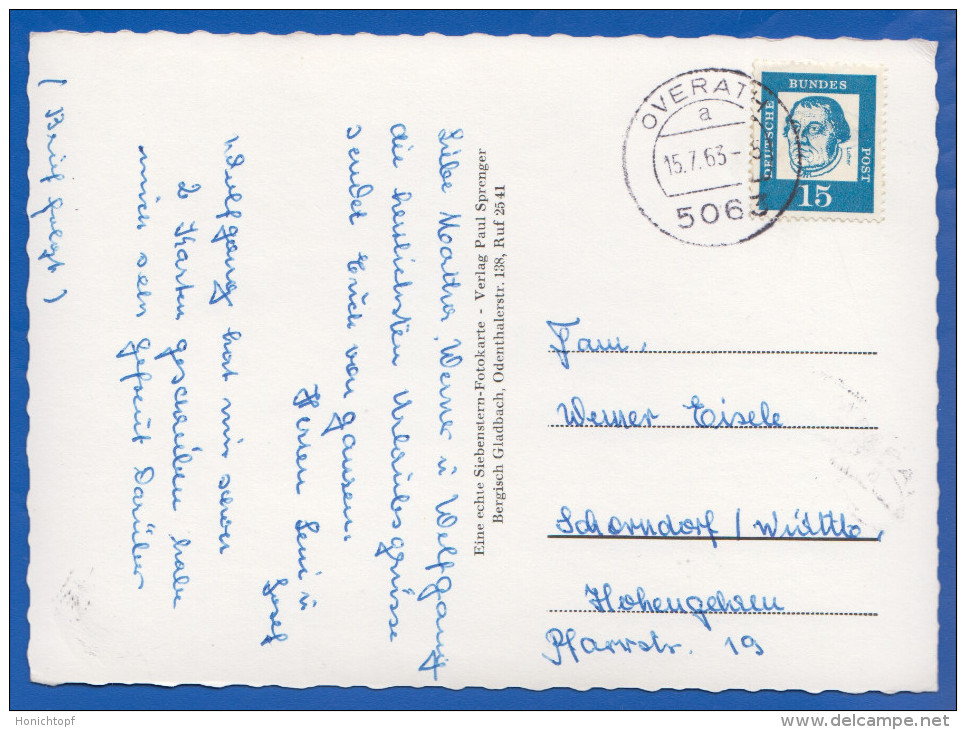 Liebe Martha, Werner u Wolfgang
die herlichsten Urlaubsgrüsse
sendet Euch von ganzen
Herzen Leni u
Josef
Wolfgang hat mir schon
2 Karten geschrieben habe
mich sehr gefreut Darüber
( Brief folgt )
Eine echte Siebenstern-Fotokarte - Verlag Paul Sprenger
Bergisch Gladbach, Odenthalerstr. 138, Ruf 25 41
OVERATH
a
15.7.63-
5063
DEUTSCHE
BUNDES
POST
Luther
15
Fam.
Werner Eisele
Schorndorf / Württb.
Hohengehren
Pfarrstr. 19
Honichtopf
www.delcampe.net